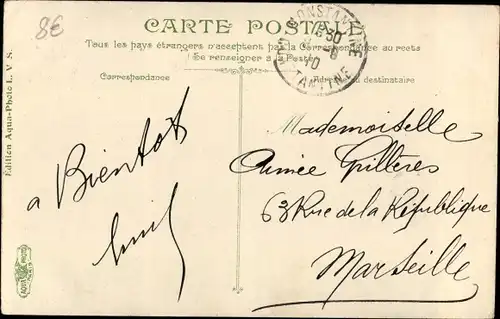 8€
CARTE POSTALE
Tous les pays étrangers n'acceptent pas la Correspondance au recto
(Se renseigner à la Poste)
Correspondance
Adresse du destinataire
CONSTANTINE
30
10
Edition Aqua-Photo L. V. S.
a Bientot
Mademoiselle
Aimée Grillères
63 Rue de la République
Marseille
AQUA PHOTO
PARIS